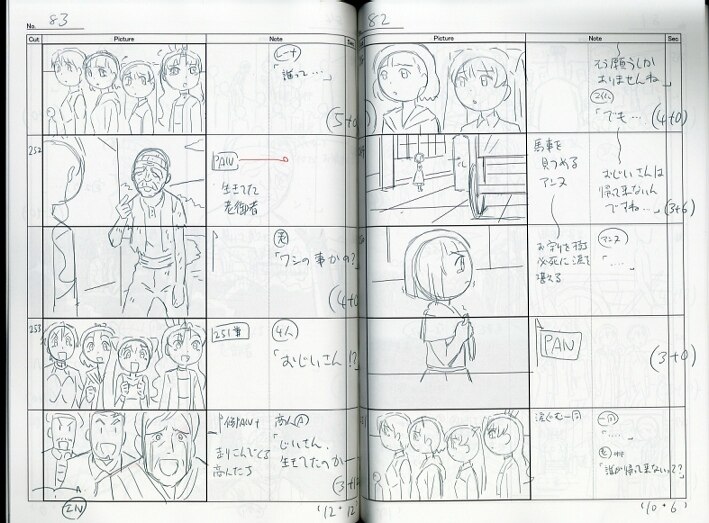 No. 83
Cut
Picture
Note
Sec
「誰って…」
(5+0)
252
PAN
生きてた
老御者
老
「ワシの事かの?」
(4+0)
253
251番
4人
「おじいさん!?」
PAN
走りこんでくる
商人A
「じいさん、
生きてたのかー
(3+12)
2N
12+12
82
Picture
Note
Sec
そう願うしか
ありませんね」
「でも…
(4+0)
馬車を
見つめる
アンヌ
おじいさんは
帰って来ないん
ですね…」
(3+6)
お守りを
必死に涙を
堪える
アンヌ
「….
PAN
(3+0)
涙ぐむ一同
一同
「….
「誰が帰って来ないって?」
10+6